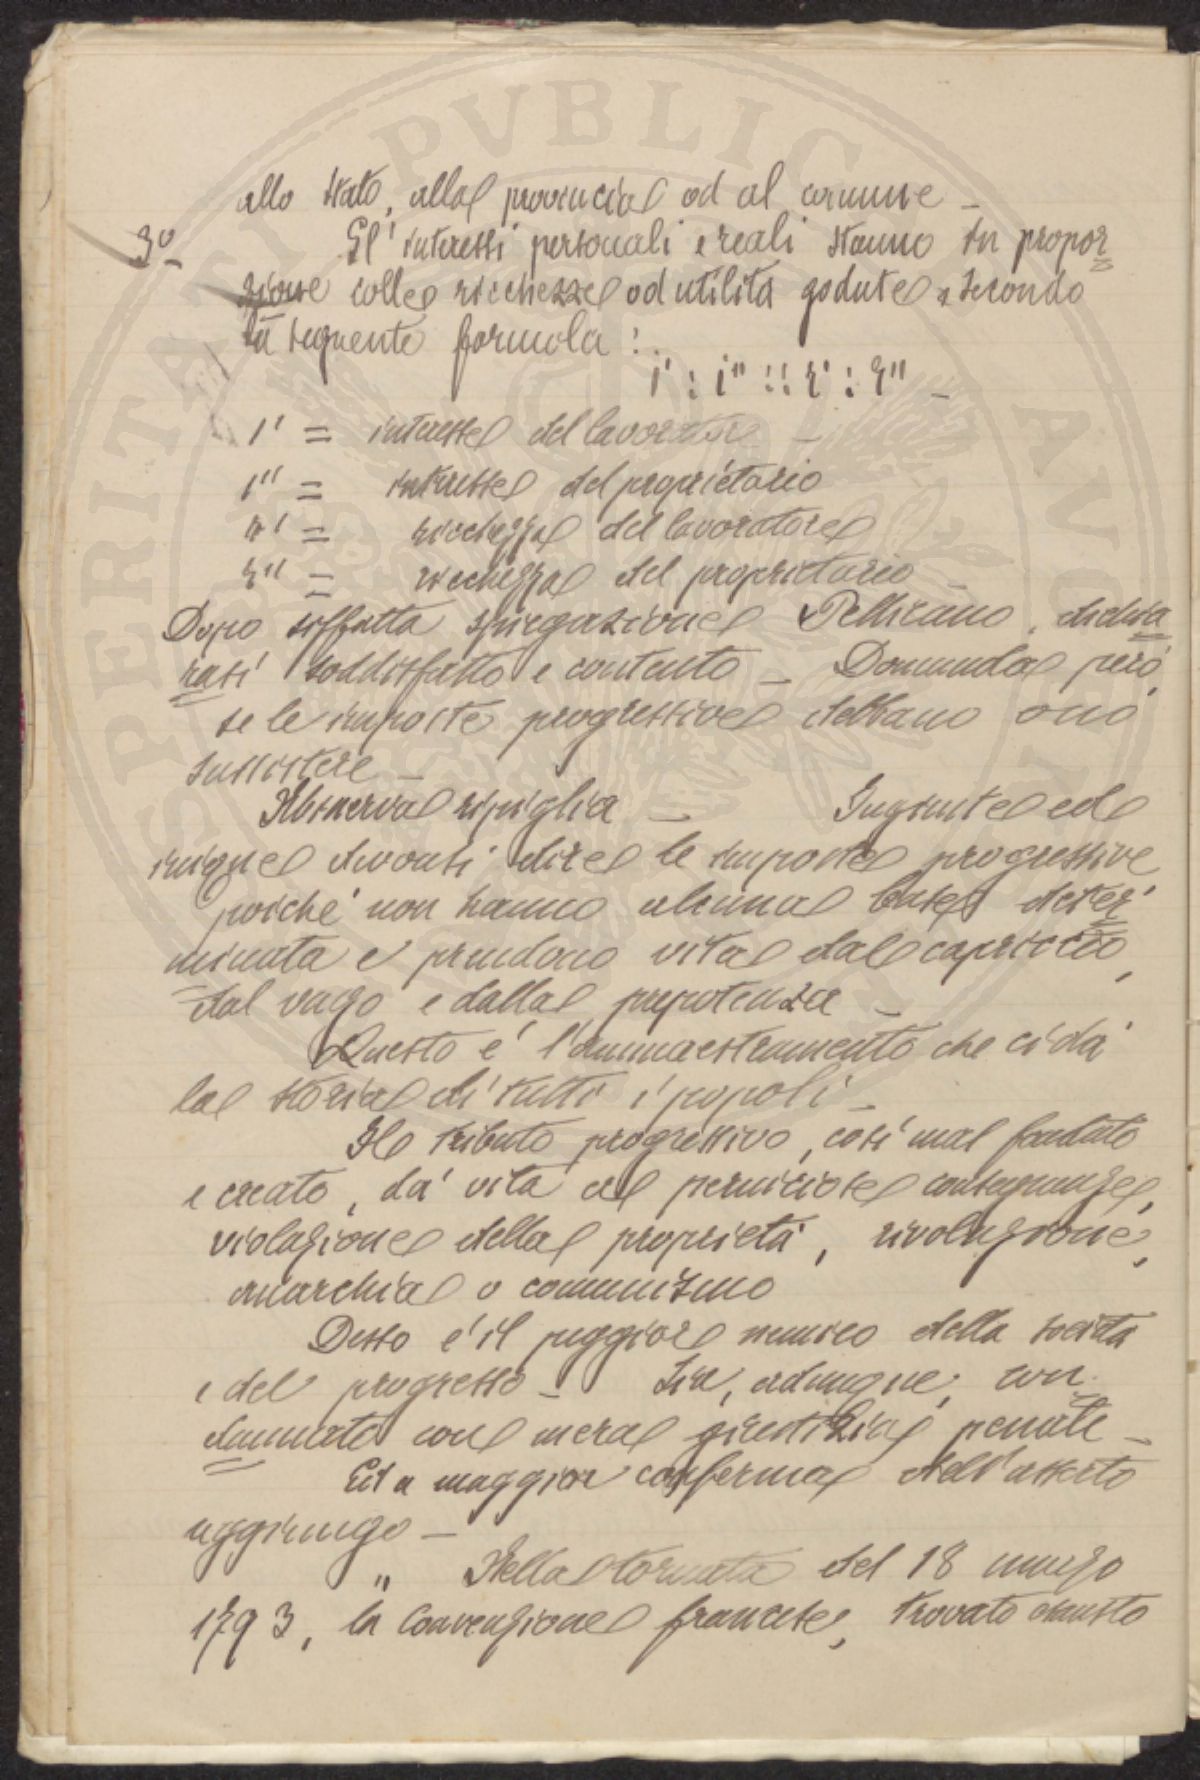 allo Stato, alla provincia od al comune –
3º Gl'interessi personali e reali stanno in propor
zione colle ricchezze od utilità godute, secondo
la seguente formola:
i' : i'' :: r' : r'' –
i' = interesse del lavoratore –
i'' = interesse del proprietario
r' = ricchezza del lavoratore
r'' = ricchezza del proprietario –
Dopo siffatta spiegazione Pellicano, dichia
rasi soddisfatto e contento – Domanda però,
se le imposte progressive debbano o nò
sussistere –
Minerva ripiglia – Ingiuste ed
inique devonsi dire le imposte progressive
poiché non hanno alcuna base deter
minata e prendono vita dal capriccio,
dal vago e dalla prepotenza –
Questo é l'ammaestramento che ci dà
la storia di tutti i popoli –
Il tributo progressivo, così mal fondato
e creato, dà vita a perniciose conseguenze,
violazione della proprietà, rivoluzione,
anarchia o comunismo
Desso é il peggiore nemico della società
e del progresso – Sia, adunque, con
dannato con mera giustizia penale –
Ed a maggior conferma dell'asserto
aggiungo –
" Nella tornata del 18 marzo
1793, la Convenzione francese, trovato